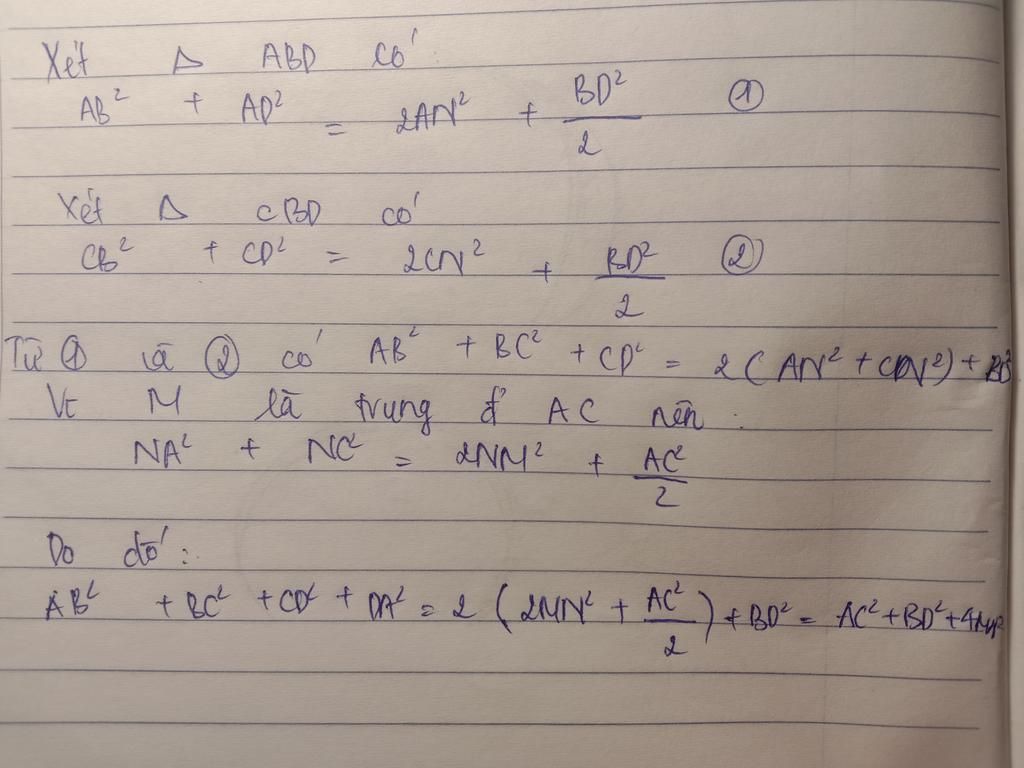 Xét Δ ABD có
AB² + AD² = 2AN² + BD²/2 ①
Xét Δ CBD có
CB² + CD² = 2CN² + BD²/2 ②
Từ ① và ② có AB² + BC² + CD² = 2(AN² + CN²) + BD²
Vì M là trung đ' AC nên :
NA² + NC² = 2NM² + AC²/2
Do đó :
AB² + BC² + CD² + DA² = 2 (2MN² + AC²/2) + BD² = AC² + BD² + 4MN²